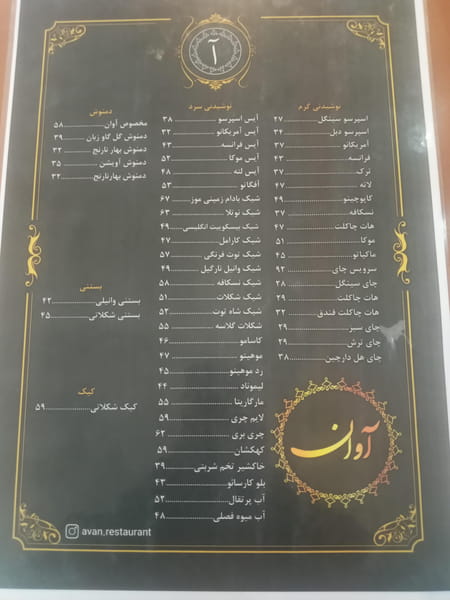 آ
نوشیدنی گرم
اسپرسو سینگل ۲۷
اسپرسو دبل ۳۴
آمریکانو ۳۷
فرانسه ۴۳
ترک ۳۷
لاته ۴۷
کاپوچینو ۴۹
نسکافه ۳۷
هات چاکلت ۴۷
موکا ۵۱
ماکیاتو ۴۵
سرویس چای ۹۲
چای سینگل ۲۸
هات چاکلت ۲۹
هات چاکلت فندق ۳۲
چای سبز ۲۹
چای ترش ۲۹
چای هل دارچین ۳۸
آوان
نوشیدنی سرد
آیس اسپرسو ۳۸
آیس آمریکانو ۳۲
آیس فرانسه ۴۳
آیس موکا ۵۲
آیس لته ۴۸
آفگاتو ۵۳
شیک بادام زمینی موز ۶۷
شیک نوتلا ۶۳
شیک بیسکوییت انگلیسی ۴۹
شیک کارامل ۴۷
شیک توت فرنگی ۵۷
شیک وانیل نارگیل ۴۹
شیک نسکافه ۵۸
شیک شکلات ۵۱
شیک شاه توت ۵۲
شکلات گلاسه ۵۵
کاسامو ۴۶
موهیتو ۴۷
رد موهیتو ۴۵
لیموناد ۴۴
مارگاریتا ۵۵
لایم چری ۵۹
چری بری ۶۲
کهکشان ۵۹
خاکشیر تخم شربتی ۳۹
بلو کارسائو ۴۳
آب پرتقال ۵۲
آب میوه فصلی ۴۸
دمنوش
مخصوص آوان ۵۸
دمنوش گل گاو زبان ۳۹
دمنوش بهار نارنج ۳۲
دمنوش آویشن ۳۵
دمنوش بهارنارنج ۳۲
بستنی
بستنی وانیلی ۴۲
بستنی شکلاتی ۴۵
کیک
کیک شکلاتی ۵۹
avan.restaurant